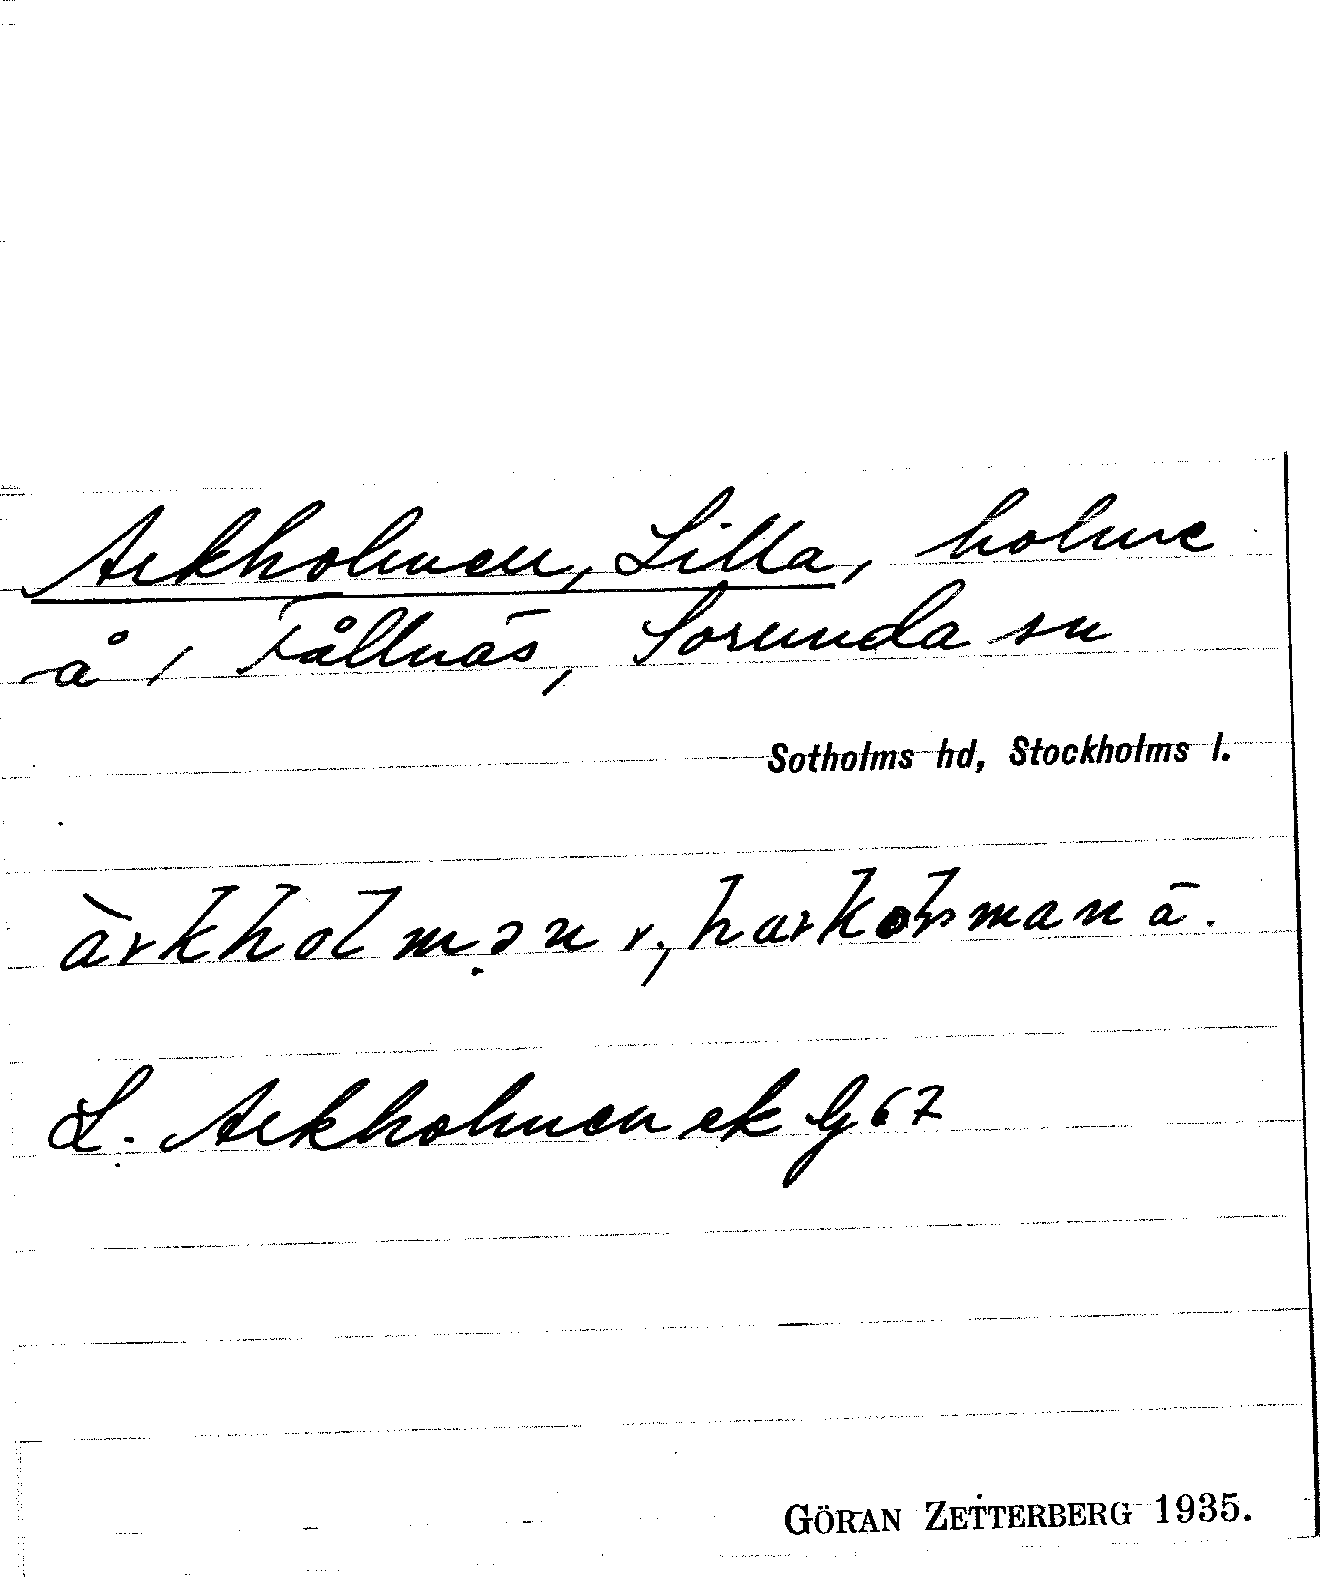 Arkholmen, Lilla, holme
å / Fållnäs, Sorunda sn
Sotholms hd, Stockholms l.
àrkholmən r., harkolmanä.
L. Arkholmen ek bl 67
GÖRAN ZETTERBERG 1935.